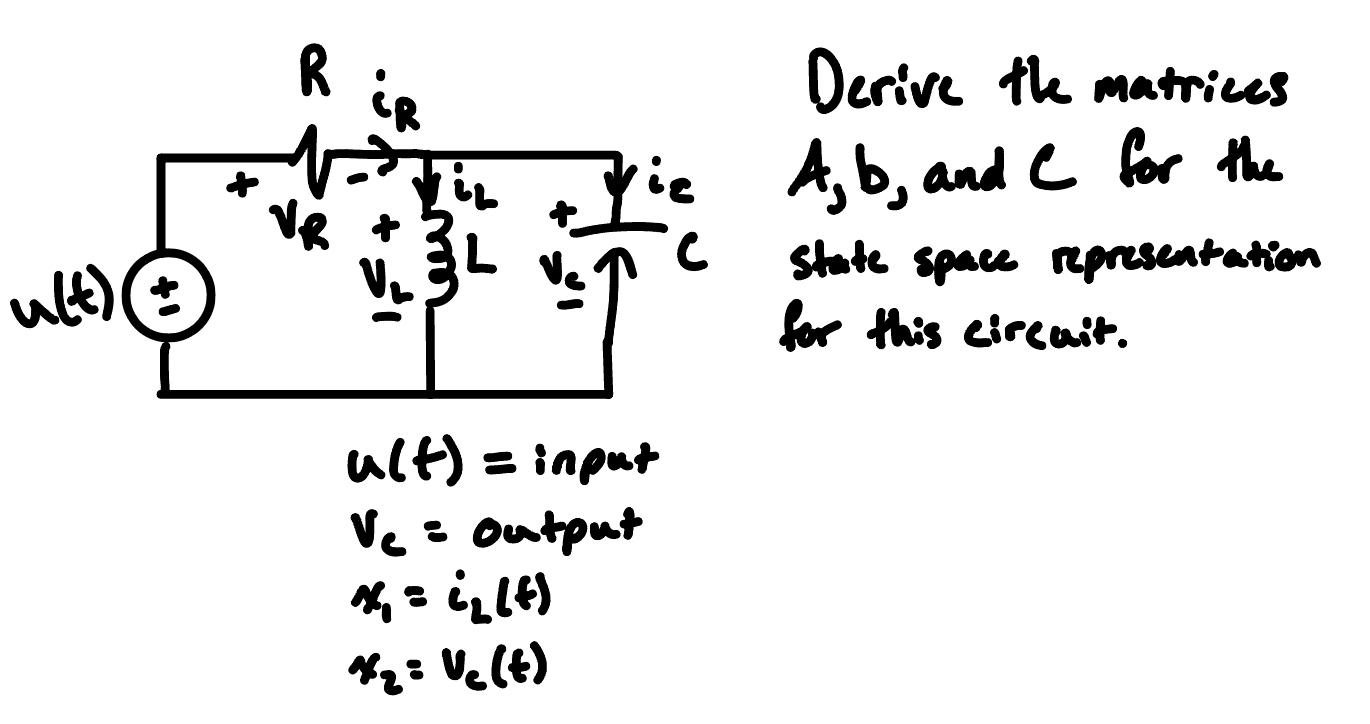 R
i_R
+ -
V_R
i_L
+
V_L
-
L
i_c
+
V_c
-
C
u(t)
+
-
Derive the matrices
A, b, and C for the
state space representation
for this circuit.
u(t) = input
V_c = output
x_1 = i_L(t)
x_2 = V_c(t)